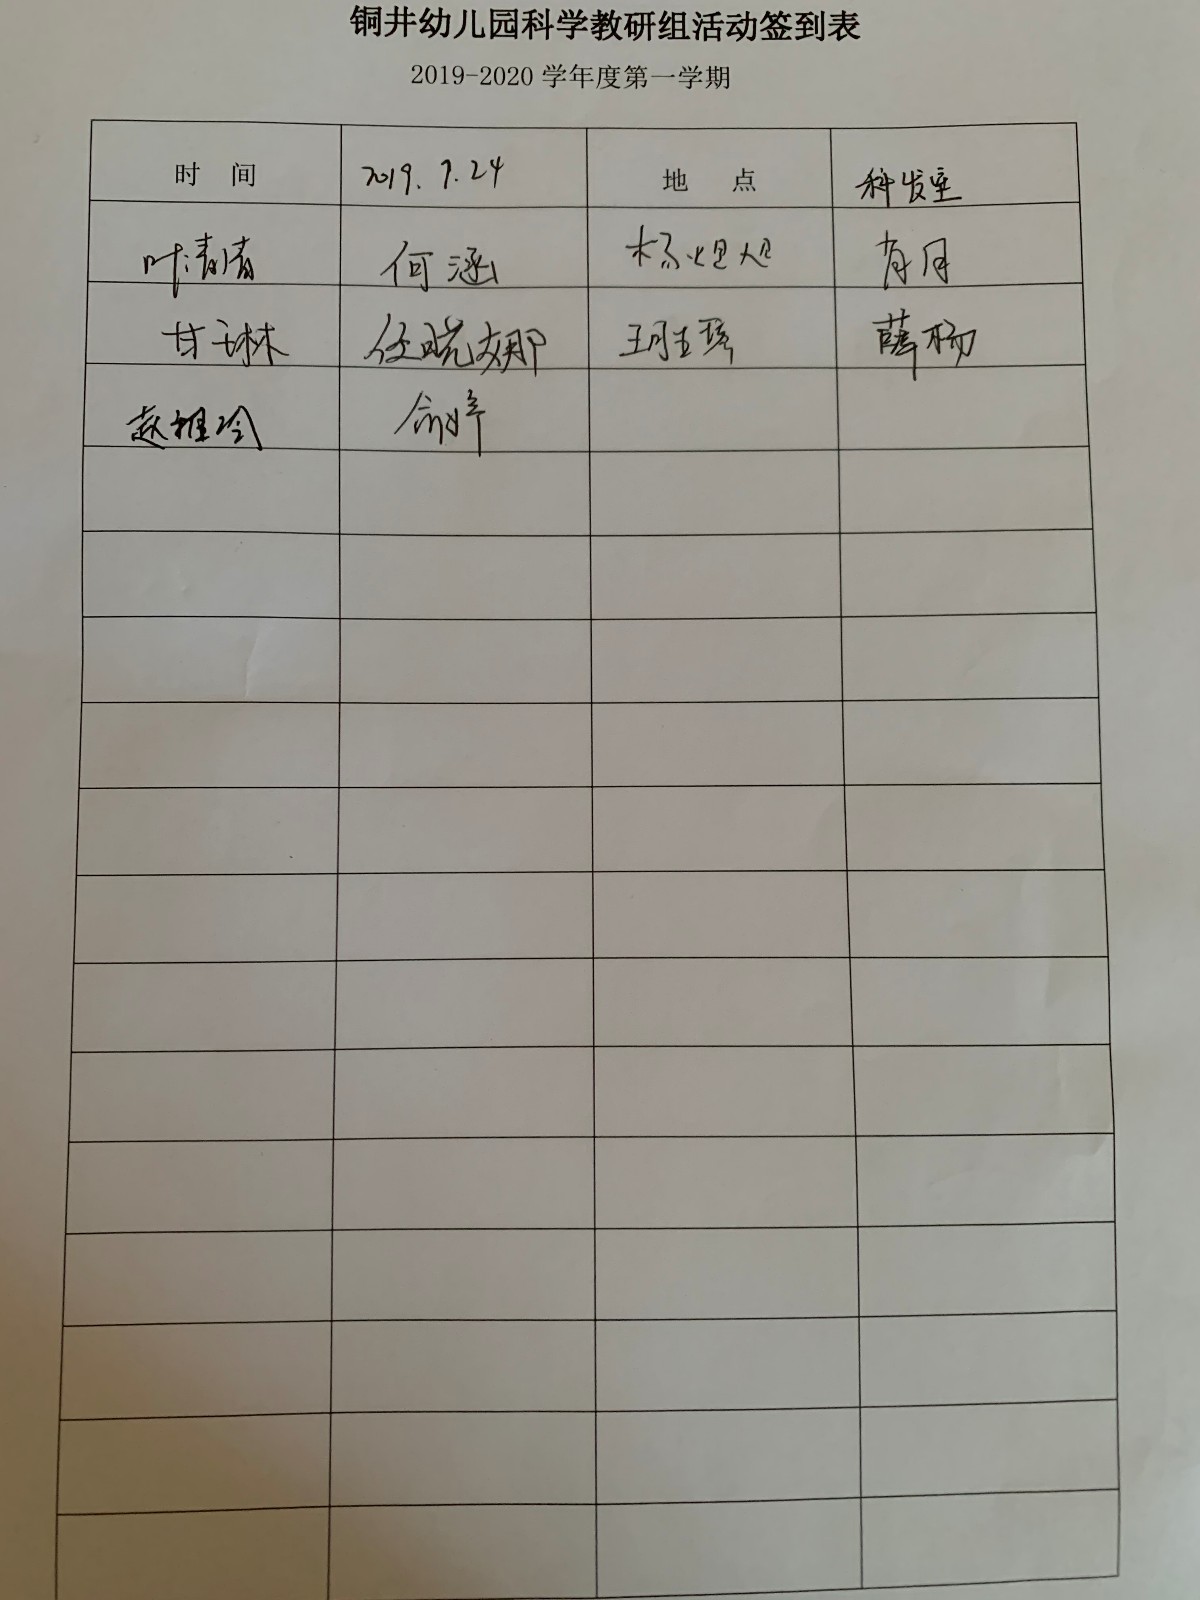 铜井幼儿园科学教研组活动签到表
2019-2020 学年度第一学期
时 间 2019. 9. 24 地 点 科发室
叶清清 何涵 杨煜 肖月
甘玉林 任晓娜 王 薛杨
赵雅冷 俞婷